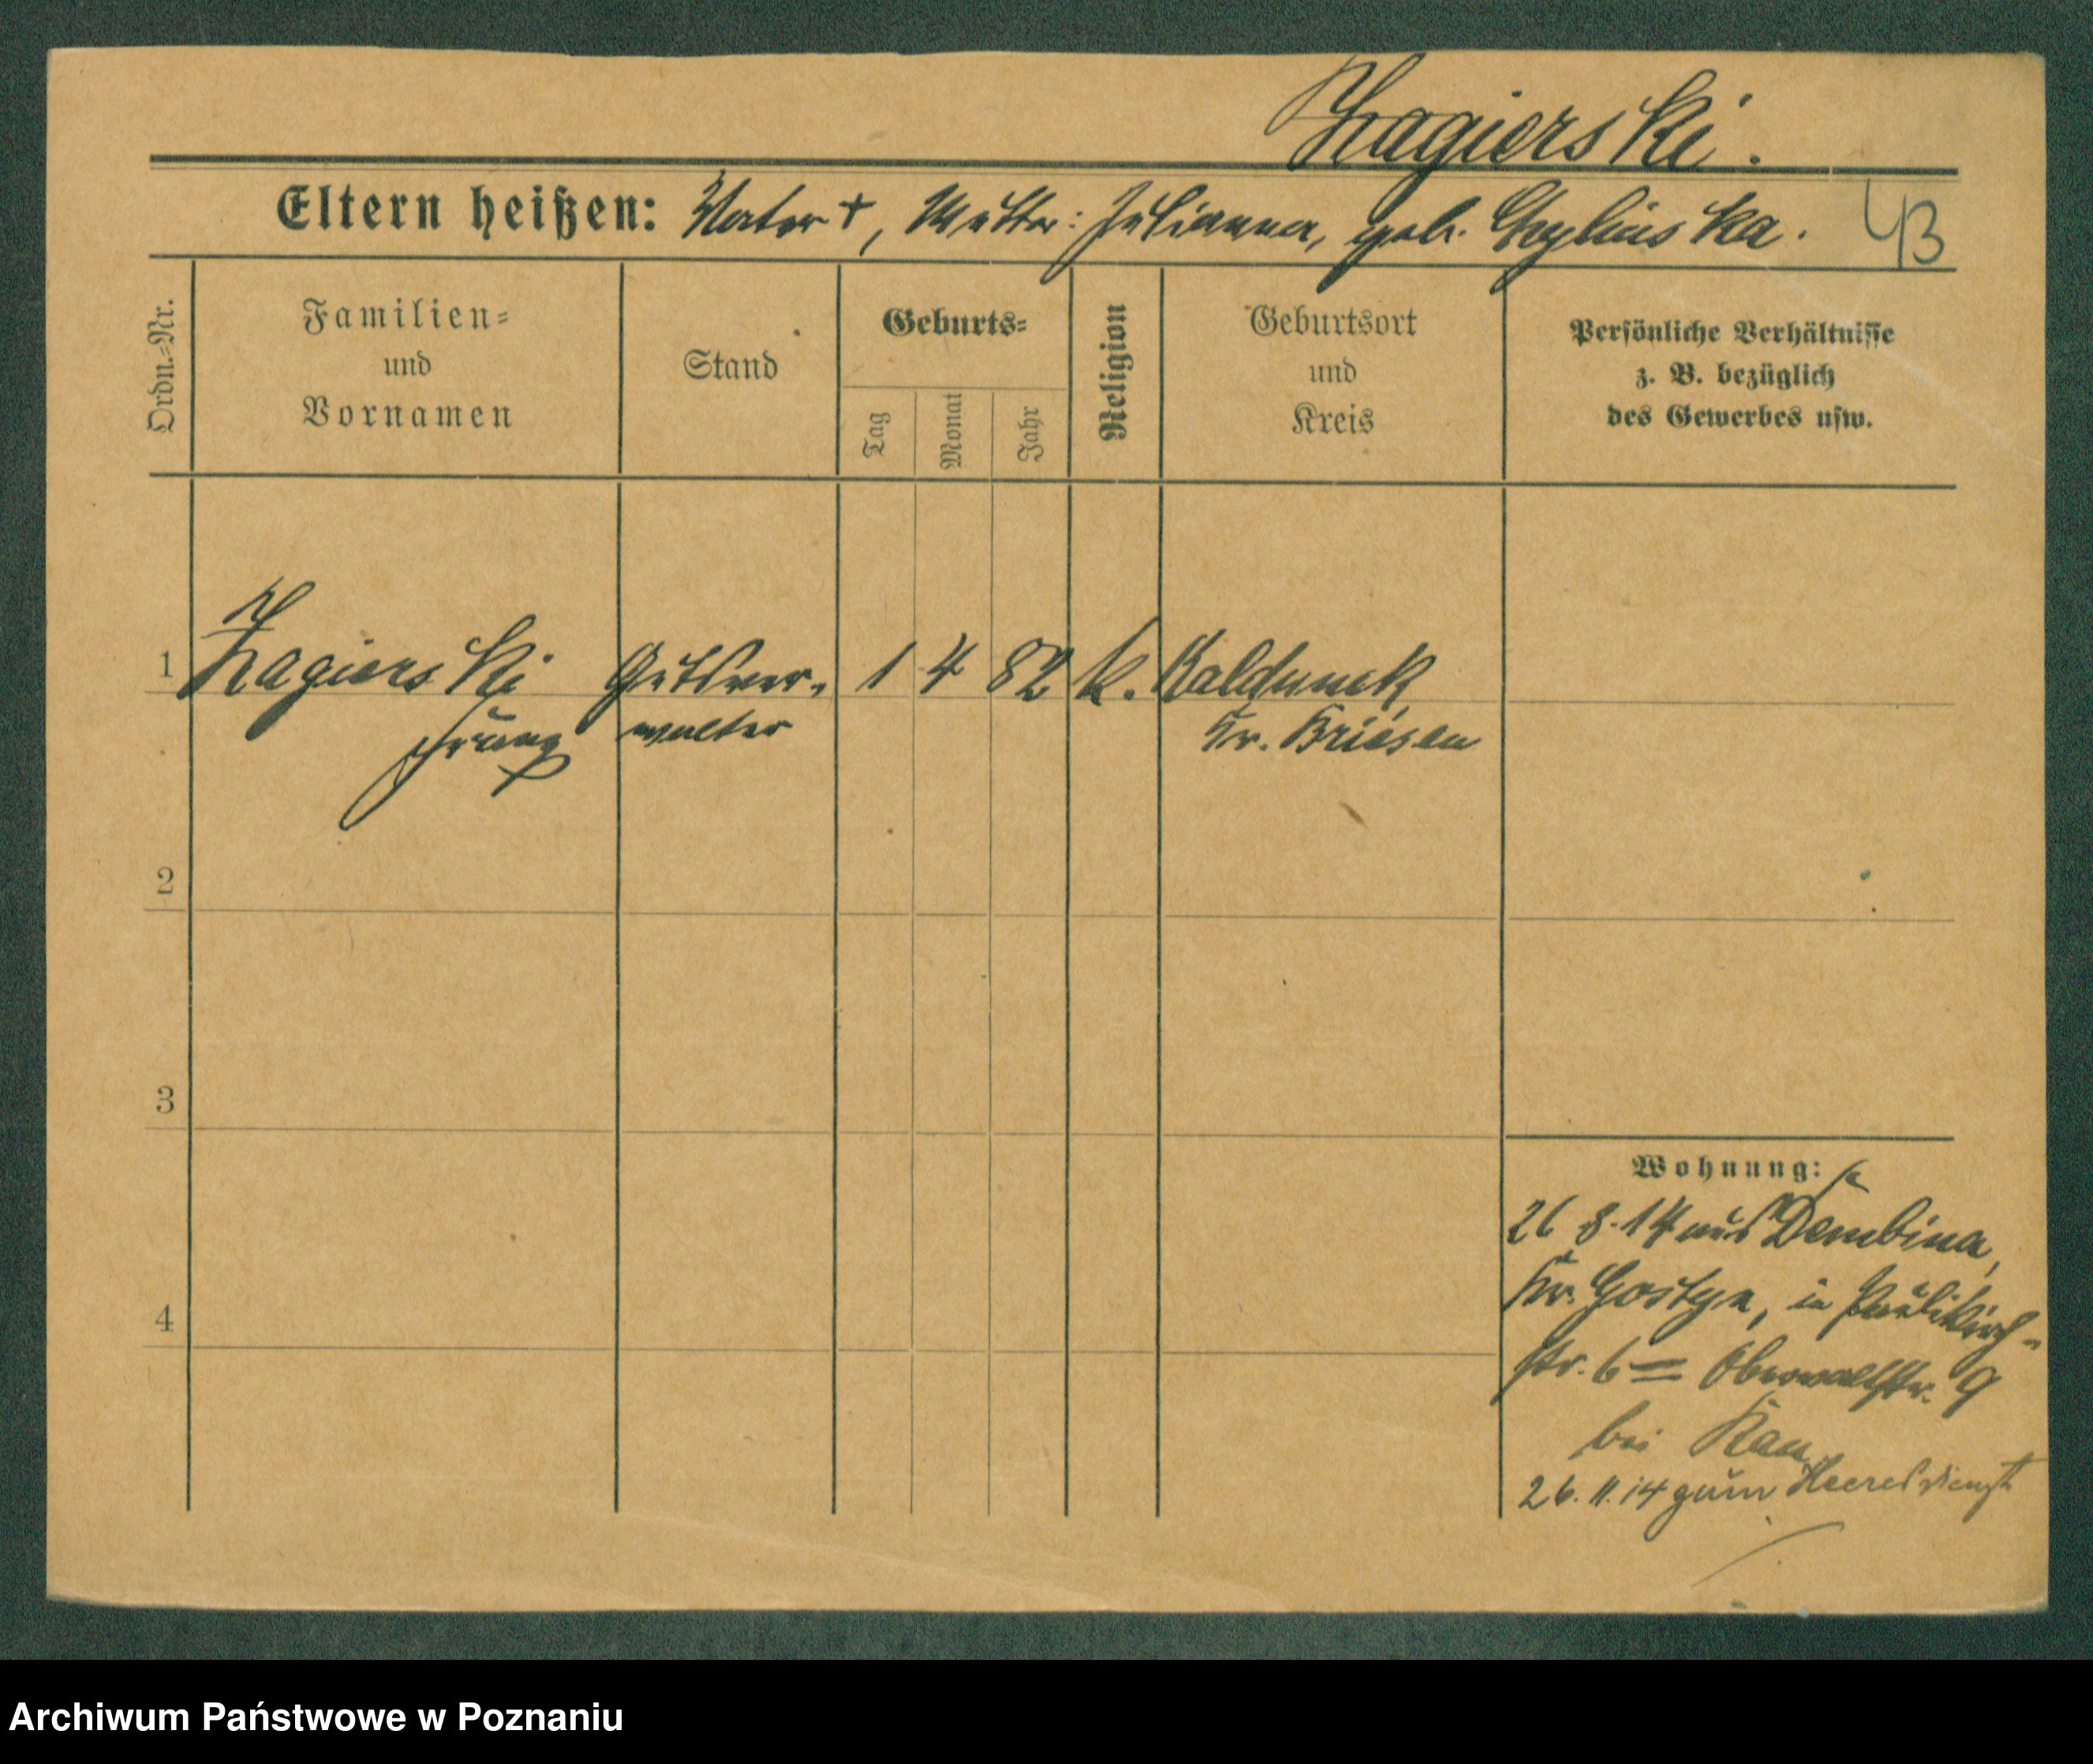 Zagierski.
Eltern heißen: Vater +, Mutter: Julianna, geb. Chylinska. 43
Ordn.-Nr.
Familien=
und
Vornamen
Stand
Geburts=
Tag
Monat
Jahr
Religion
Geburtsort
und
Kreis
Persönliche Verhältnisse
z. B. bezüglich
des Gewerbes usw.
1 Zagierski Gutsver- 1 4 82 k. Baldunek
Franz walter Kr. Briesen
2
3
4
Wohnung:
26 8. 14 aus Dembina,
Kr. Gostyn, in Paulikirch-
str. 6 = Oberwallstr. 9
bei Rau
26. 11. 14 zum Heeresdienst
Archiwum Państwowe w Poznaniu